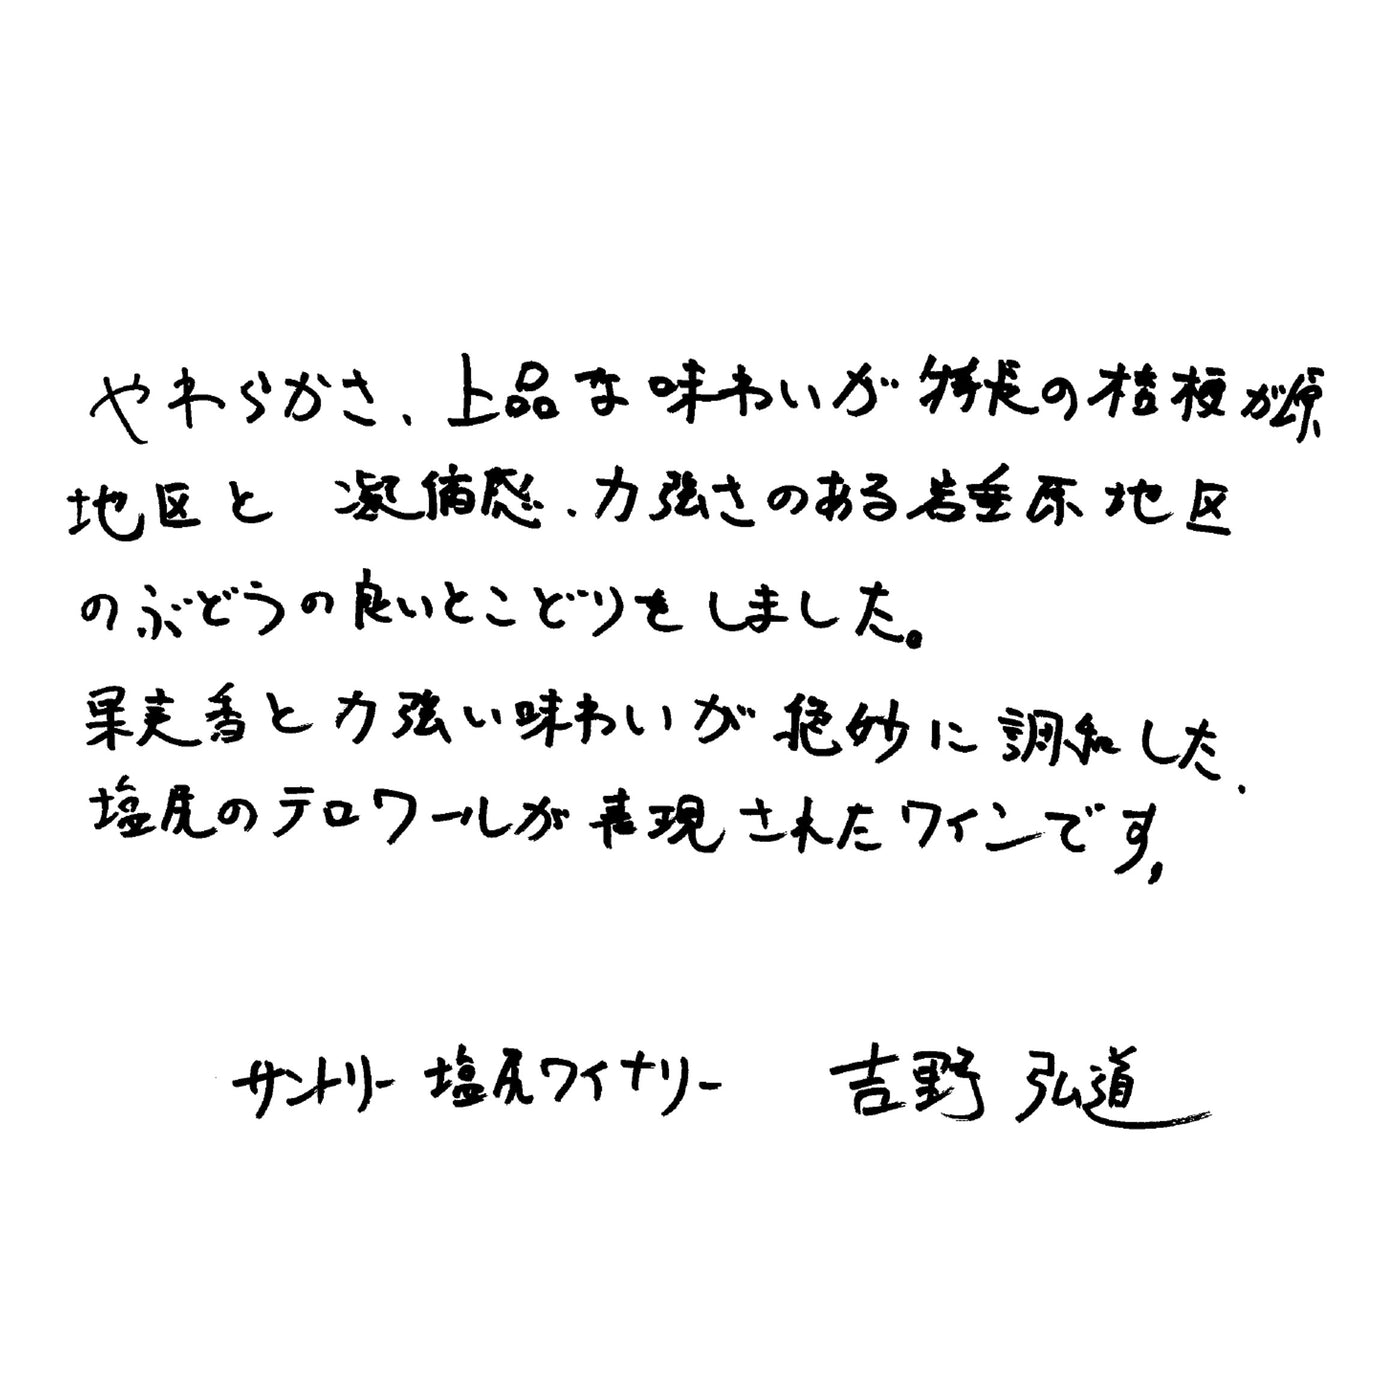 やわらかさ、上品な味わいが特長の桔梗が原
地区と 凝縮感、力強さのある岩垂原地区
のぶどうの良いとこどりをしました。
果実香と力強い味わいが絶妙に調和した、
塩尻のテロワールが表現されたワインです。
サントリー 塩尻ワイナリー 吉野 弘道